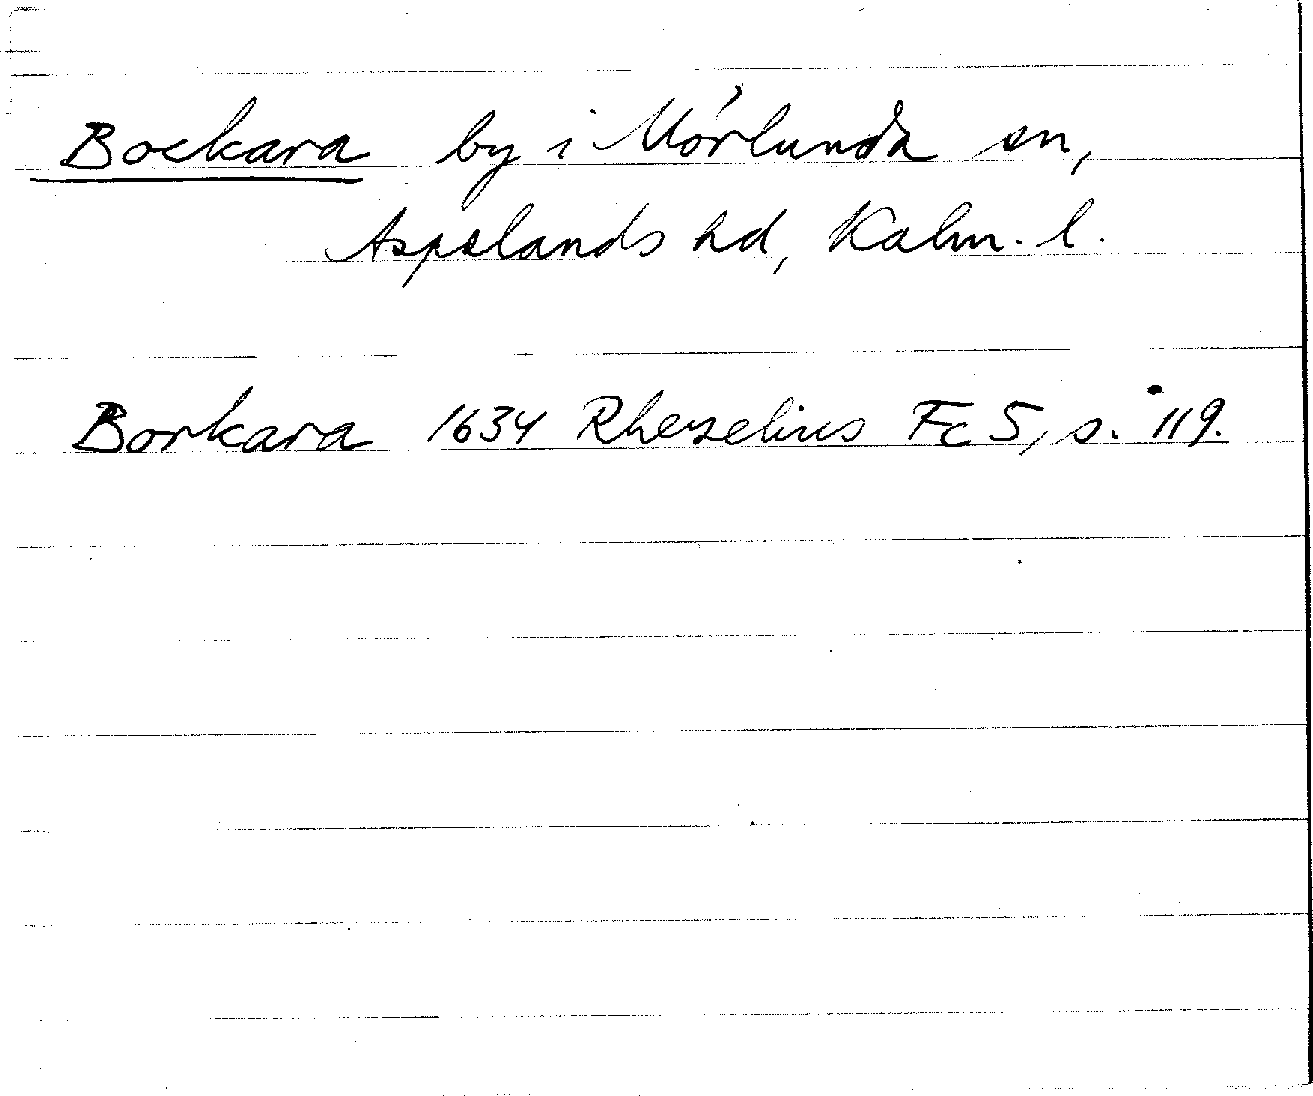 Bockara by i Mörlunda sn,
Aspelands hd, Kalm. l.
Borkara 1634 Rhezelius Fc 5, s. 119.